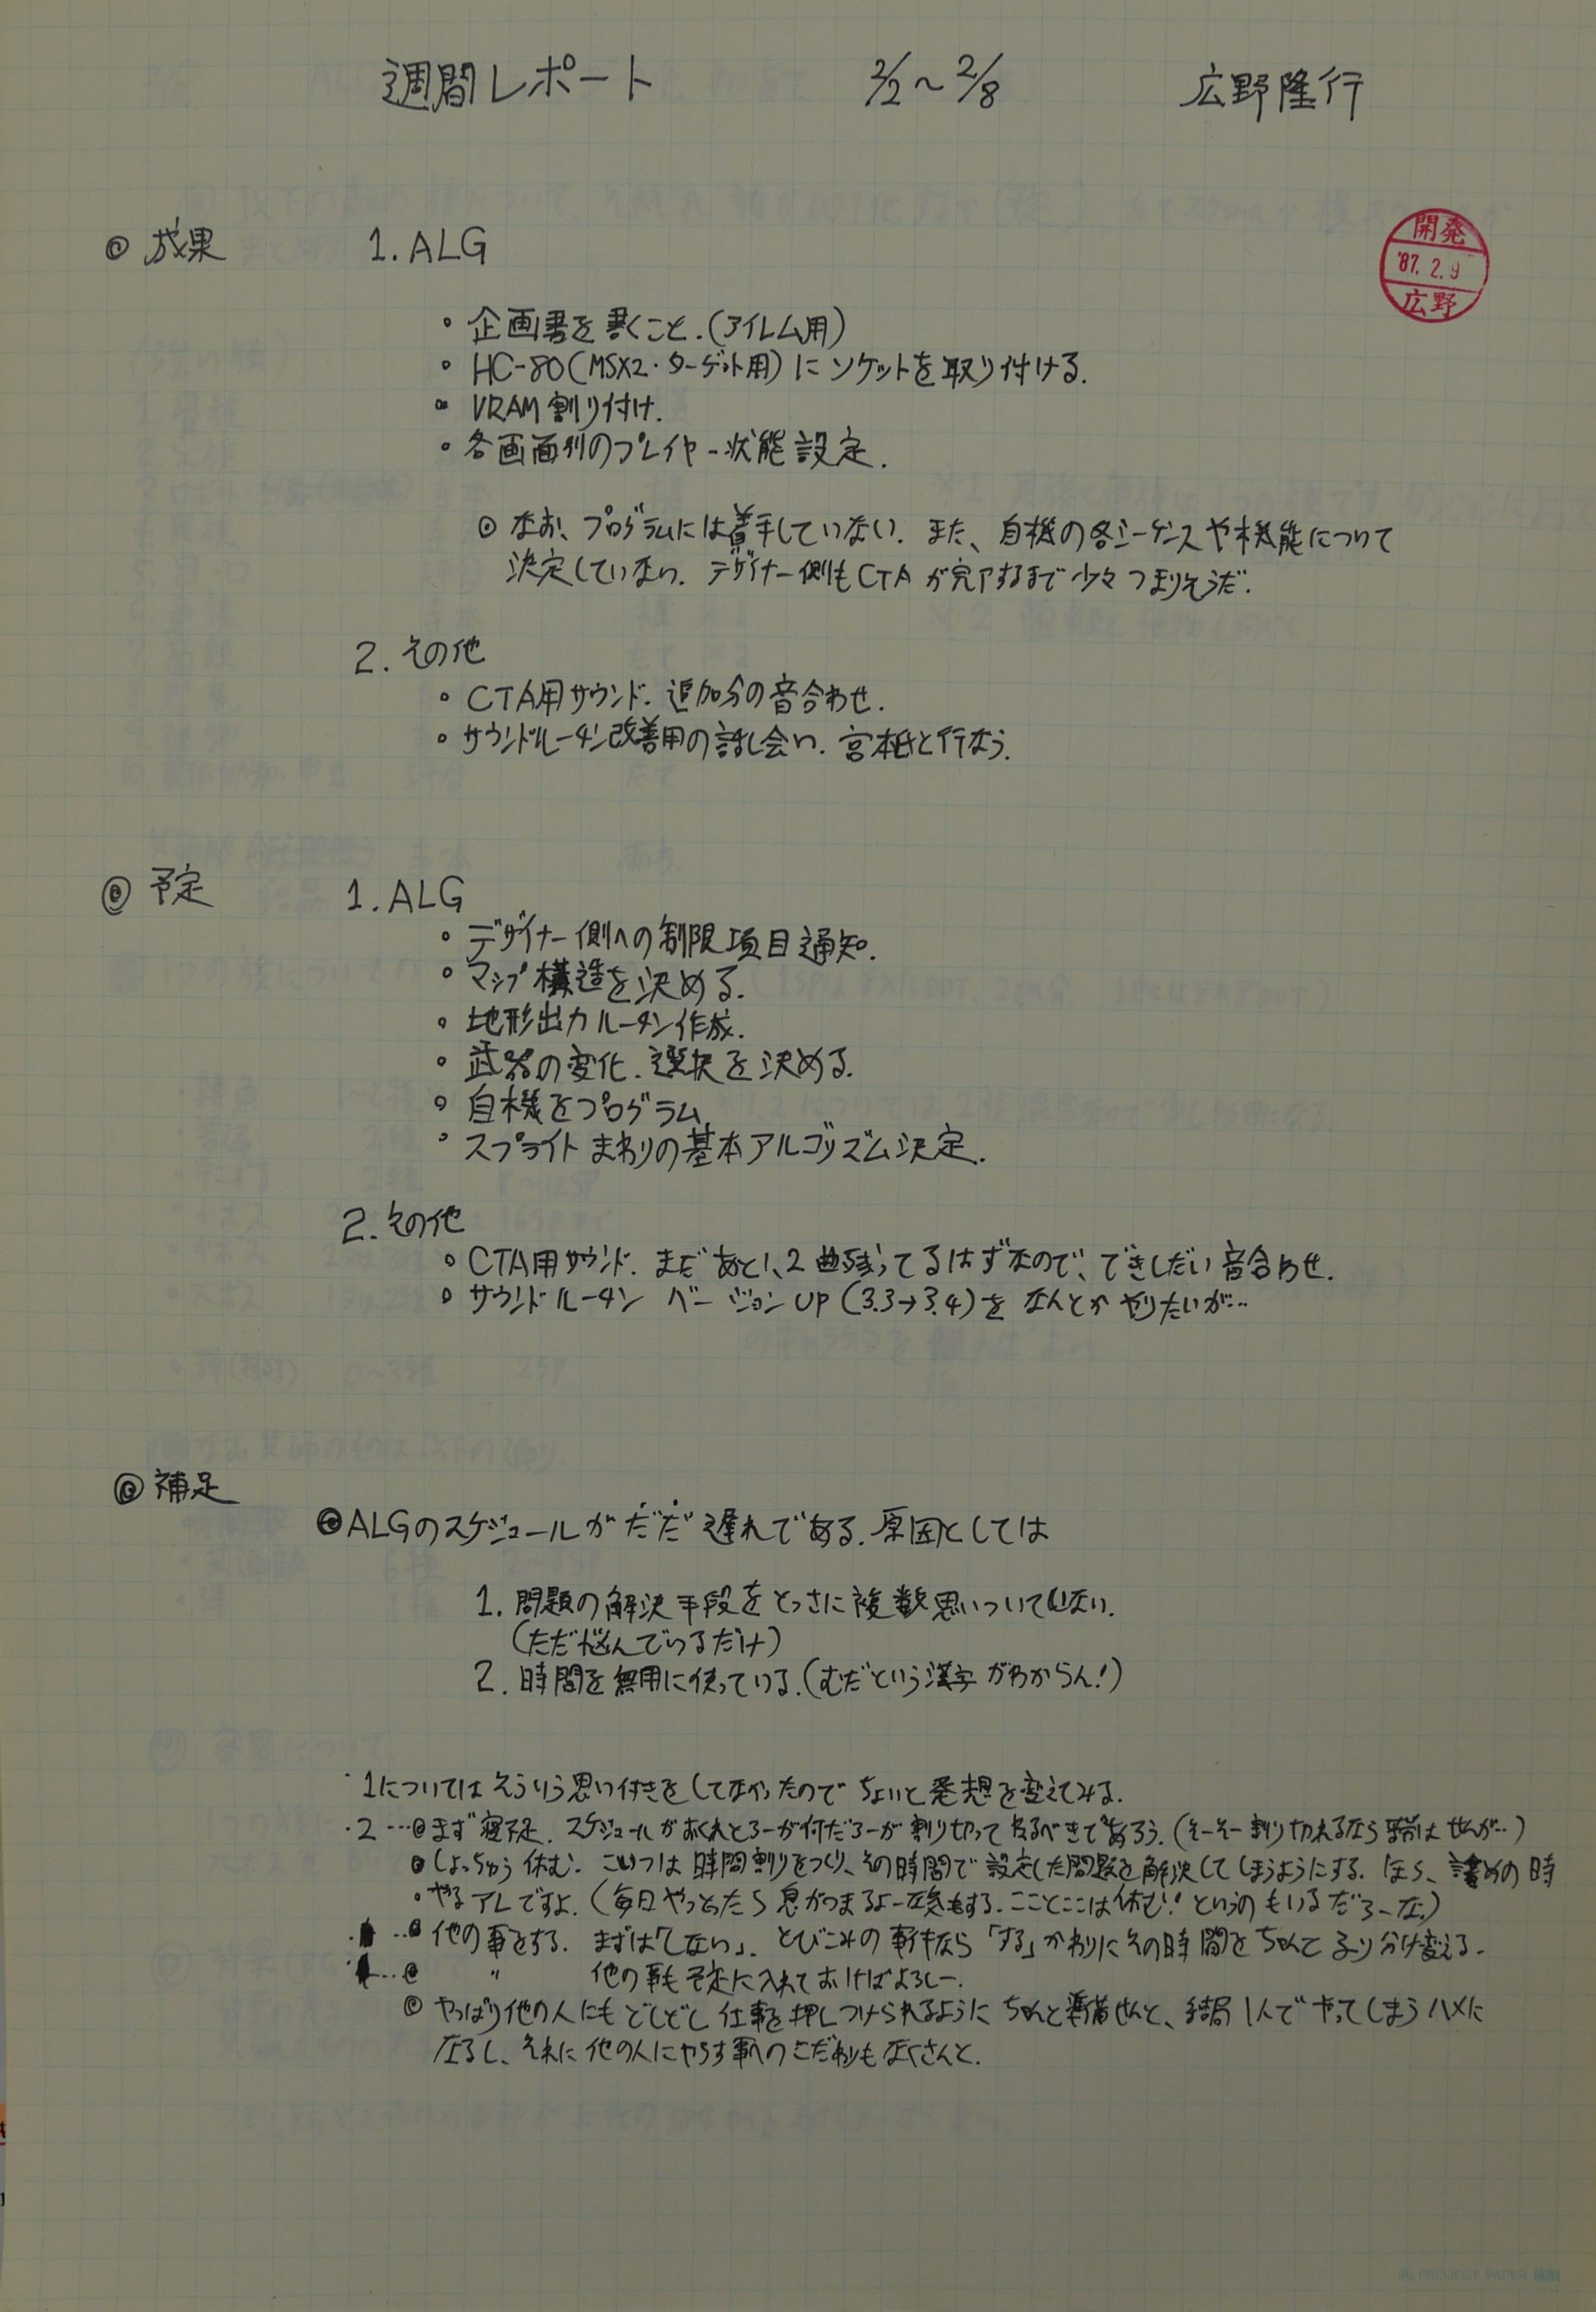 週間レポート 2/2～2/8 広野隆行
開発
'87.2.9
広野
◎ 成果 1. ALG
・企画書を書くこと.(アイレム用)
・HC-80(MSX2・ターゲット用)にソケットを取り付ける.
・VRAM割り付け.
・各画面別のプレイヤー状態設定.
◎ なお、プログラムには着手していない. また、自機の各シーケンスや機能について
決定していない. デザイナー側もCTAが完了するまで少々つまりそうだ.
2. その他
・CTA用サウンド. 追加分の音合わせ.
・サウンドルーチン改善用の話し会い. 宮本氏と行なう.
◎ 予定 1. ALG
・デザイナー側への制限項目通知.
・マップ構造を決める.
・地形出力ルーチン作成.
・武器の変化. 選択を決める.
・自機をプログラム
・スプライトまわりの基本アルゴリズム決定.
2. その他
・CTA用サウンド. まだあと1、2曲残ってるはずなので、できしだい音合わせ.
・サウンドルーチン バージョンUP (3.3→3.4)を なんとかやりたいが…
◎ 補足
◎ALGのスケジュールがだだ遅れである. 原因としては
1. 問題の解決手段をとっさに複数思いついていない.
(ただ悩んでいるだけ)
2. 時間を無用に使っている.(むだという漢字がわからん!)
・1についてはそういう思い付きをしてなかったのでちょいと発想を変えてみる.
・2 …◎まず寝不足. スケジュールがおくれとろーが何だろーが割り切ってねるべきであろう.(そーそー割り切れるなら苦労はせんが…)
◎しょっちゅう休む. こいつは時間割りをつくり、その時間で設定した問題を解決してしまうようにする. ほら、詰めの時
・やるアレですよ.(毎日やっとったら息がつまるよーな気もする. こことここは休む! というのもいるだろーな.)
…◎ 他の事をする. まずは「しない」. とびこみの事件なら「する」かわりにその時間をちゃんとふり分け変える.
…◎ 〃 他の事も予定に入れておけばよろしー.
◎ やっぱり他の人にもどしどし仕事を押しつけられるようにちゃんと準備せんと、結局1人でやってしまうハメに
なるし、それに他の人にやらす事へのこだわりもなくさんと.
PROJECT PAPER